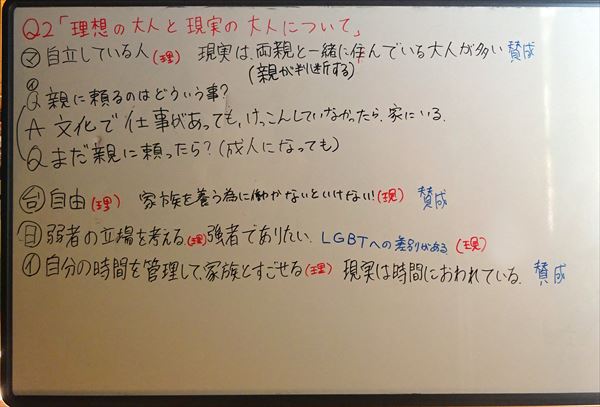 Q2「理想の大人と現実の大人について」
㋮自立している人(理) 現実は、両親と一緒に住んでいる大人が多い 賛成
(親が判断する)
㋑
Q 親に頼るのはどういう事?
A 文化で仕事があっても、けっこんしていなかったら、家にいる.
Q まだ親に頼ったら?(成人になっても)
台 自由(理) 家族を養う為に働かないといけない!(現) 賛成
日 弱者の立場を考える(理)強者でありたい. LGBTへの差別がある(現)
㋑自分の時間を管理して、家族とすごせる(理) 現実は時間におわれている. 賛成